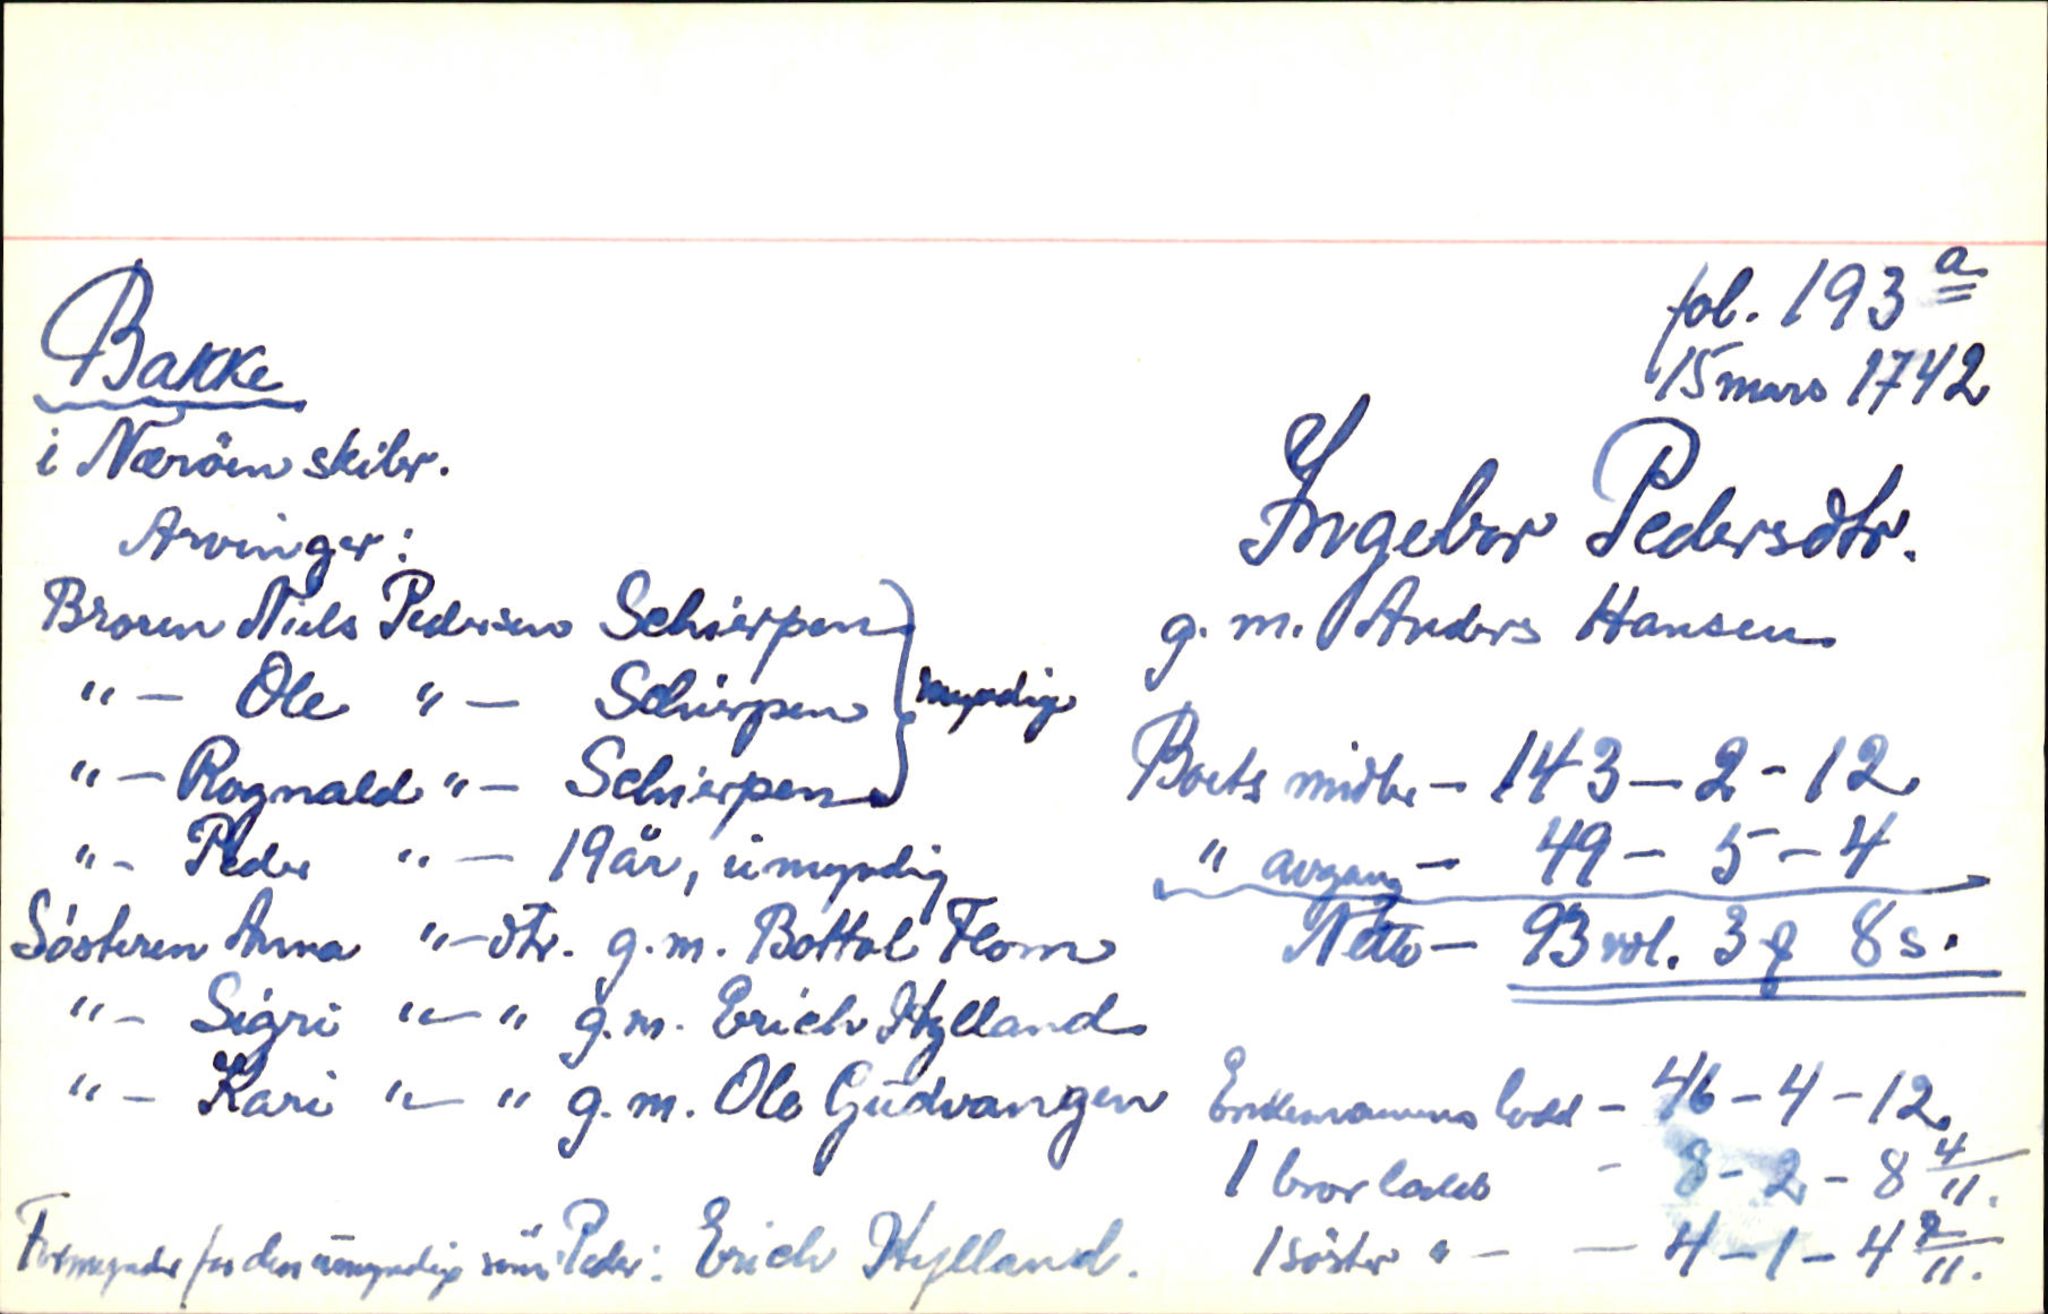 fol. 193 a
15 mars 1742
Bakke
i Næröen skibr.
Ingebor Pedersdtr.
g. m. Anders Hansen
Arvinger:
Broren Niels Pedersen Schierpen
"- Ole "- Schierpen } myndig
"- Rognald "- Schierpen
"- Peder "- 19 år, umyndig
Sösteren Anna "-dtr. g.m. Bottol Flom
"- Sigri "-" g.m. Erich Hylland
"- Kari "-" g.m. Ole Gudvangen
Formynder for den umyndige sönn Peder: Erich Hylland.
Boets midler - 143 - 2 - 12
" avgang - 49 - 5 - 4
Netto - 93 rdl. 3 ƒ 8 s.
Enkemannens lodd - 46 - 4 - 12
1 bror lodd - 8 - 2 - 8 4/11.
1 söster " - - 4 - 1 - 4 2/11.